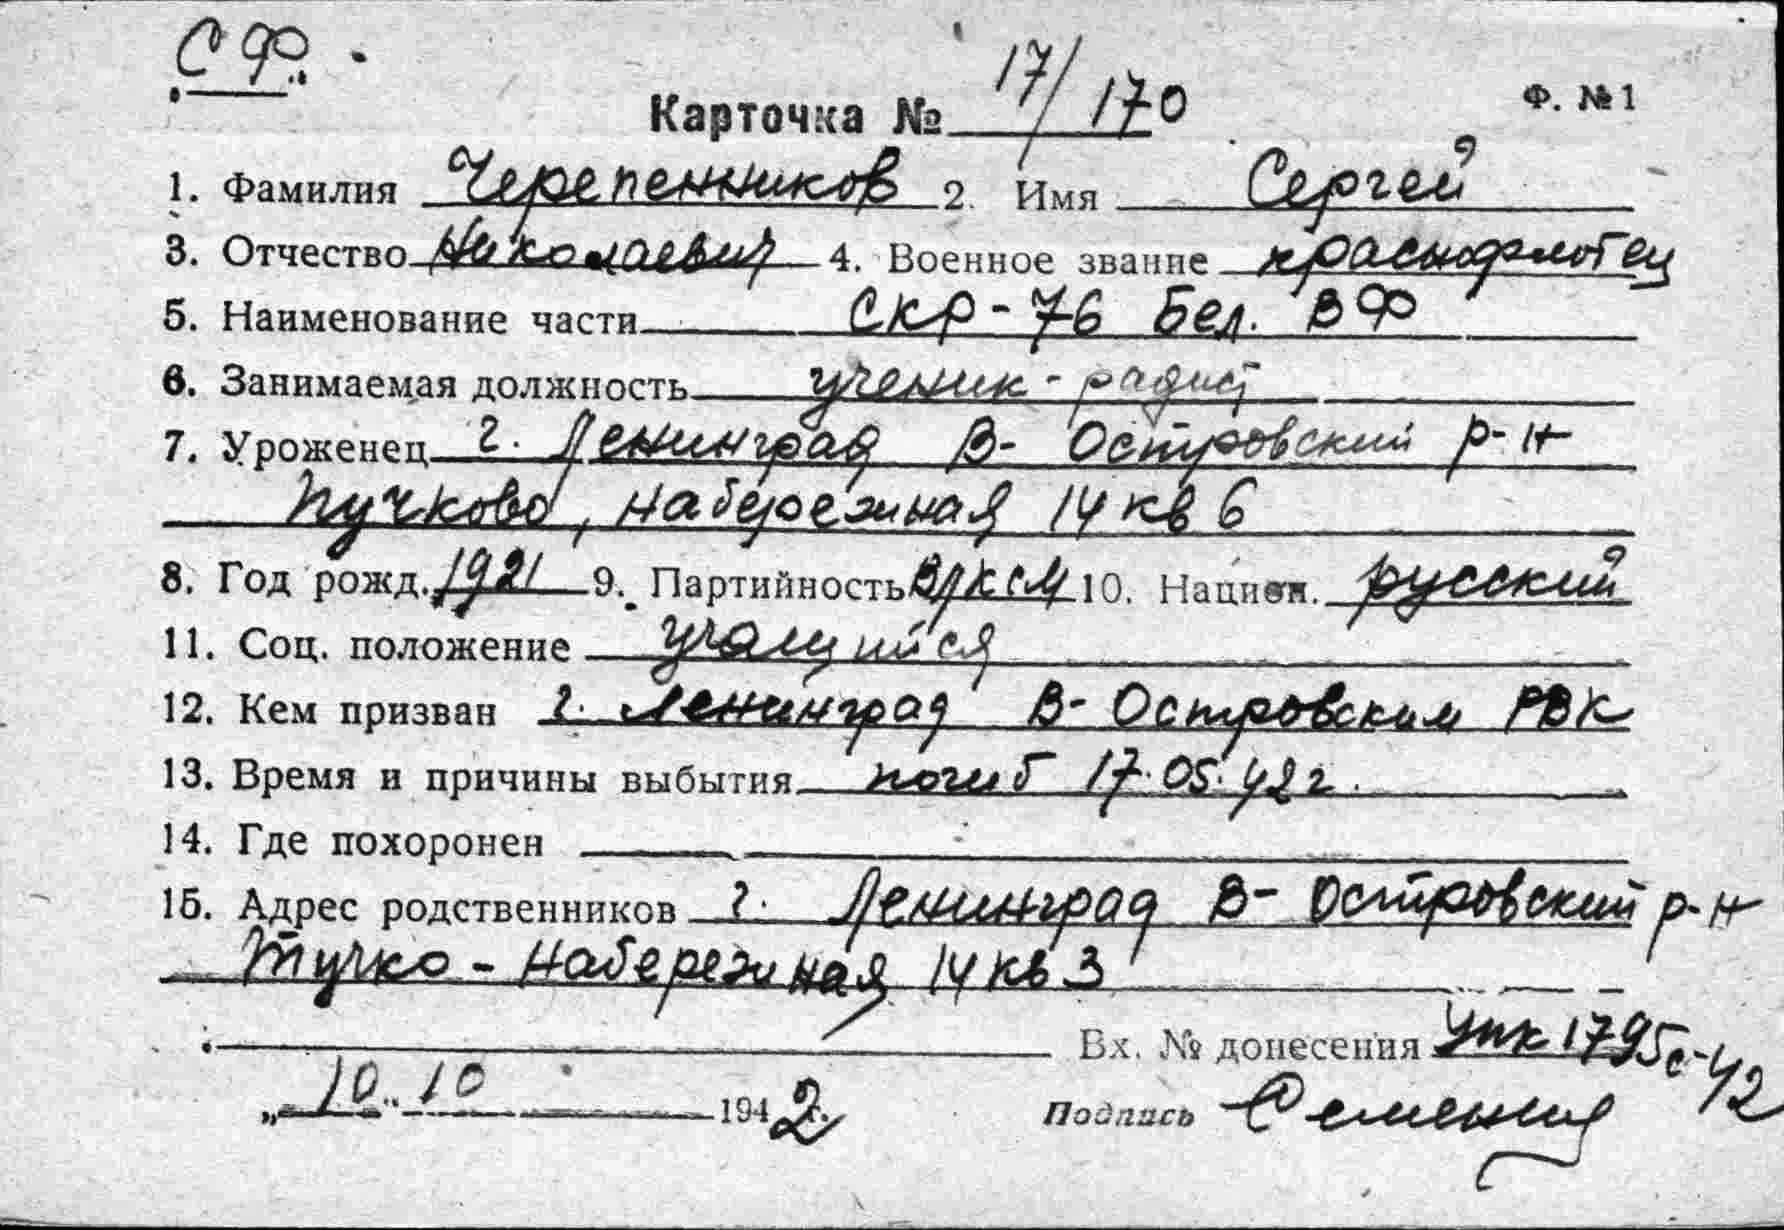 СФ
Карточка № 17/170 Ф. № 1
1. Фамилия Черепенников 2. Имя Сергей
3. Отчество Николаевич 4. Военное звание краснофлотец
5. Наименование части СКР-76 Бел. ВФ
6. Занимаемая должность ученик-радист
7. Уроженец г. Ленинград В-Островский р-н
Пучково, набережная 14 кв 6
8. Год рожд. 1921 9. Партийность ВЛКСМ 10. Национ. русский
11. Соц. положение учащийся
12. Кем призван г. Ленинград В-Островским РВК
13. Время и причины выбытия погиб 17.05.42 г.
14. Где похоронен
15. Адрес родственников г. Ленинград В-Островский р-н
Тучко-набережная 14 кв 3
Вх. № донесения Упк 1795с-42
„10" 10 1942 г. Подпись